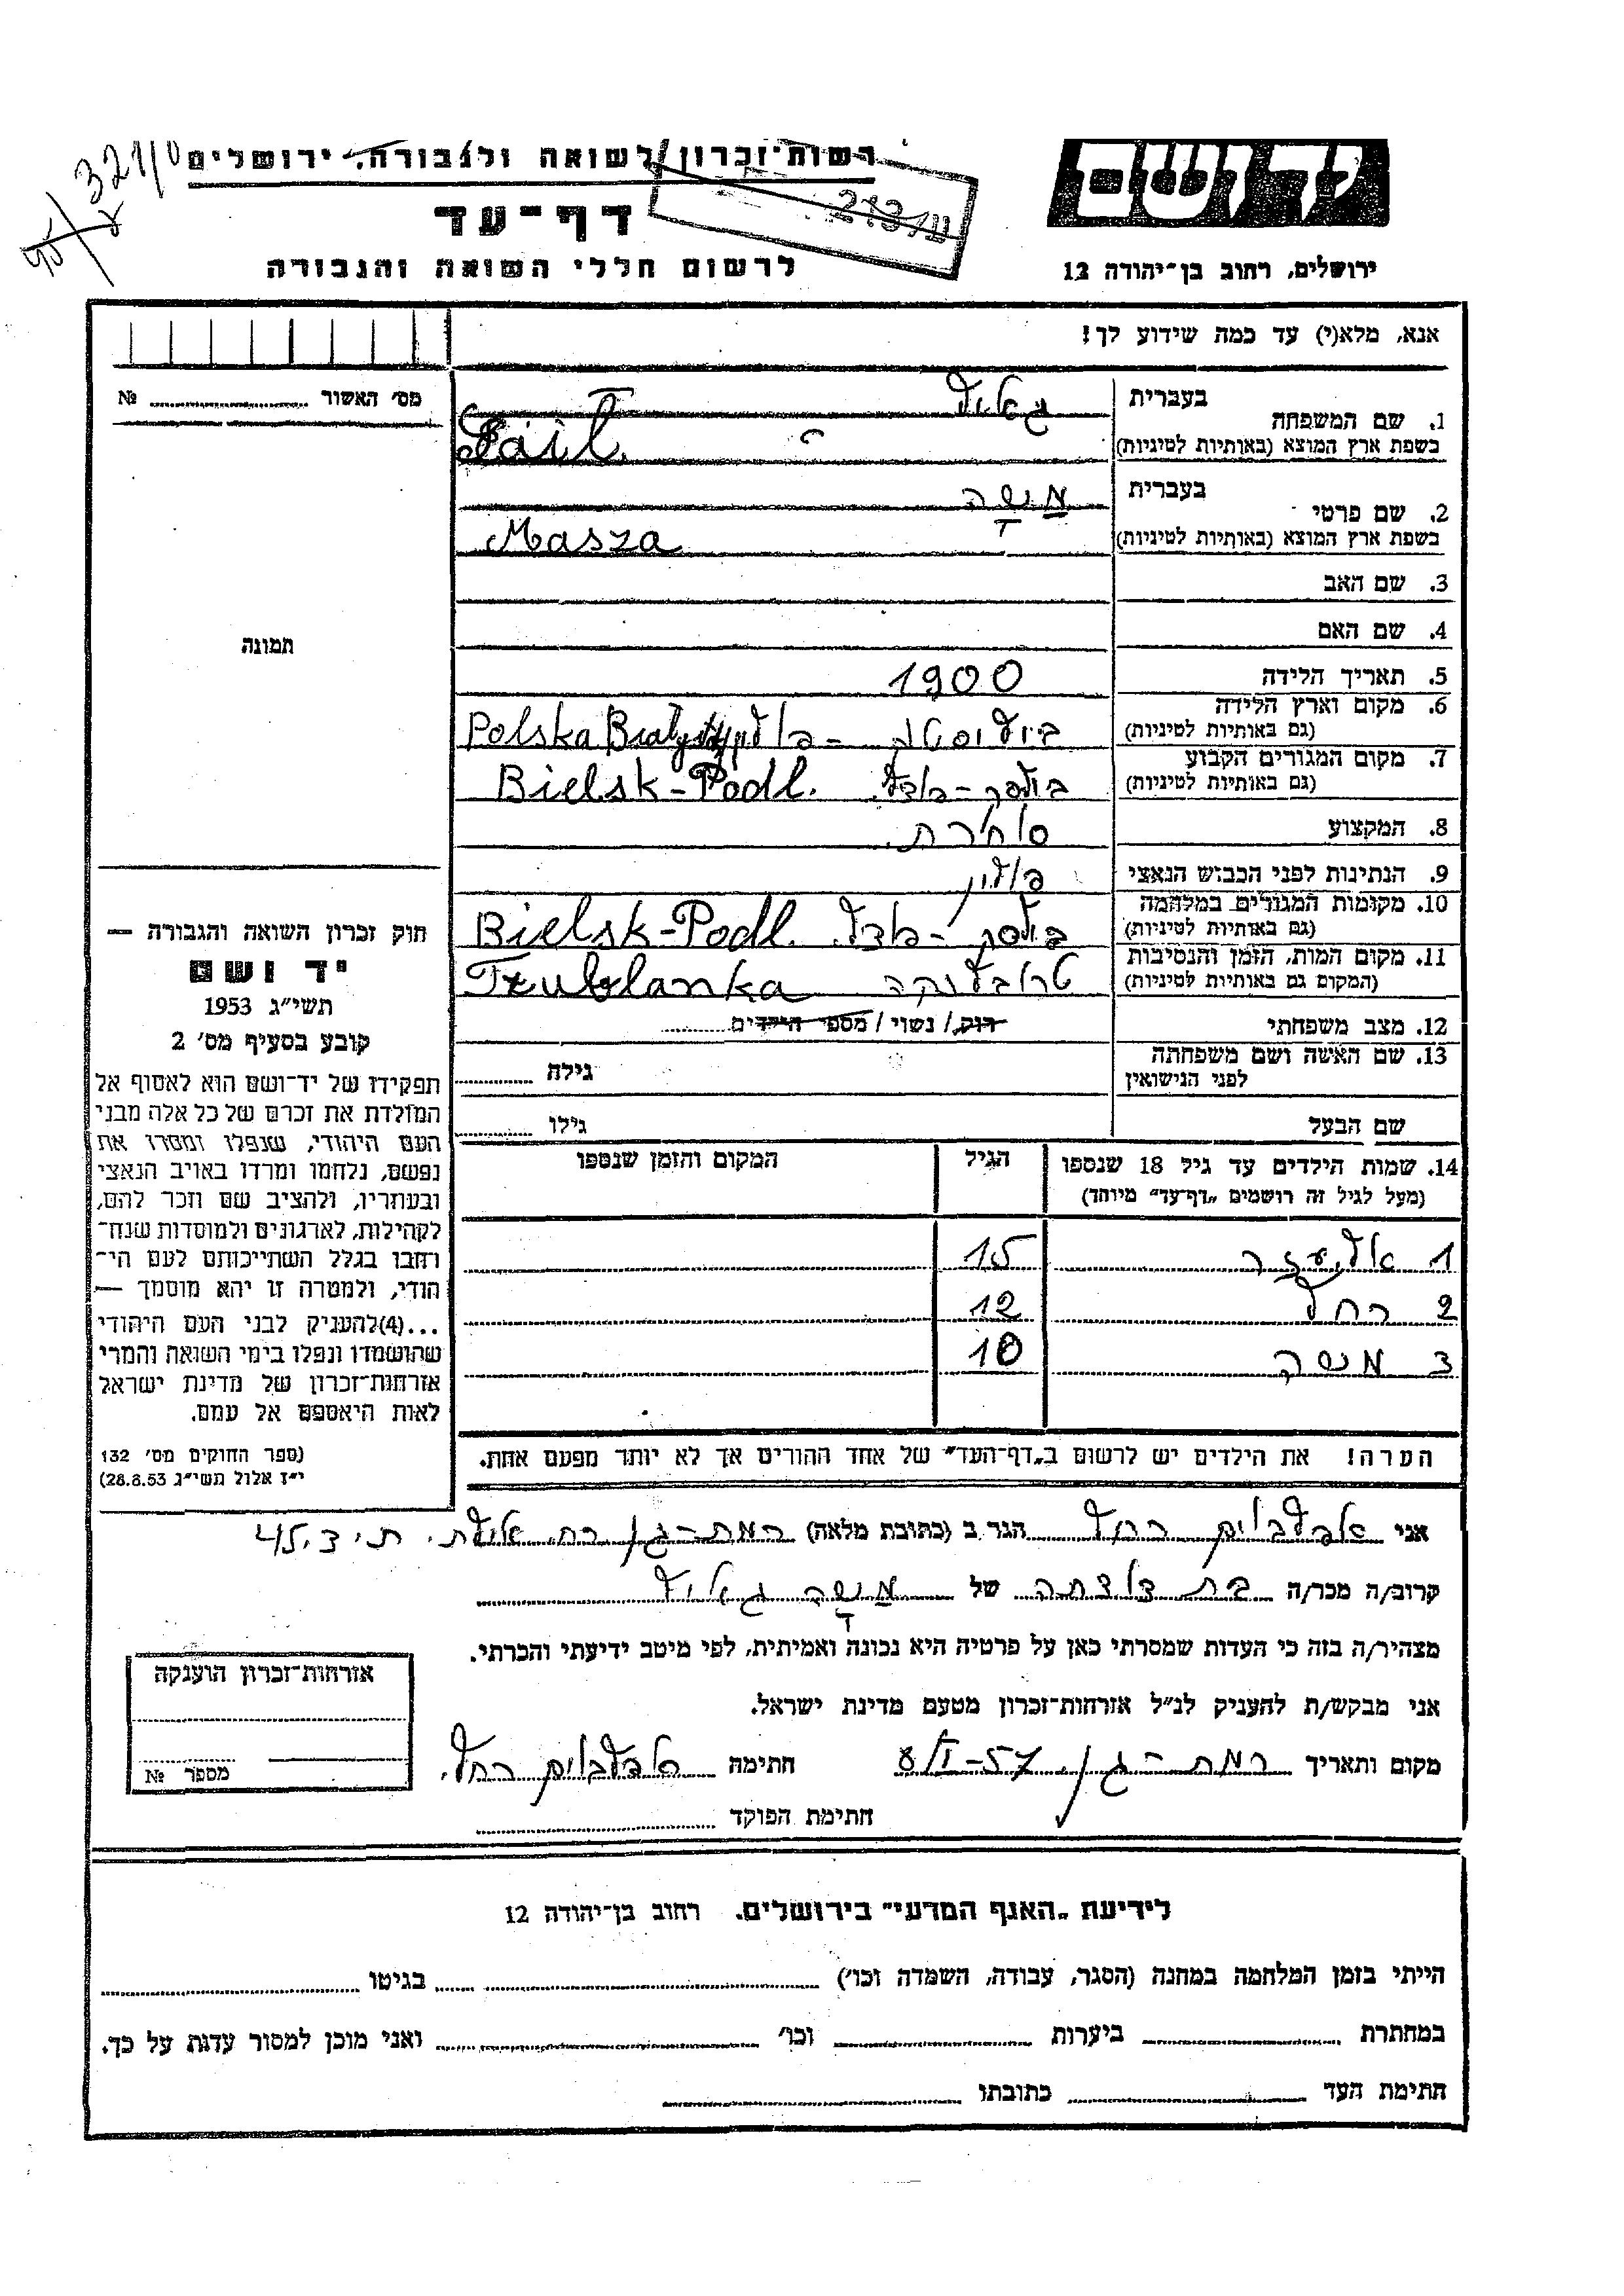 321/0
רשות־זכרון לשואה ולגבורה, ירושלים
יד ושם
דף־עד
לרשום חללי השואה והגבורה
ירושלים, רחוב בן־יהודה 12
אנא, מלא(י) עד כמה שידוע לך!
מס׳ האשור № 
1. שם המשפחה
בעברית
בשפת ארץ המוצא (באותיות לטיניות)
2. שם פרטי
בעברית משה
בשפת ארץ המוצא (באותיות לטיניות) Masza
3. שם האב
4. שם האם
תמונה
5. תאריך הלידה 1900
6. מקום וארץ הלידה
(גם באותיות לטיניות) Polska
7. מקום המגורים הקבוע
(גם באותיות לטיניות) Bielsk-Podl.
8. המקצוע סוחרת.
9. הנתינות לפני הכבוש הנאצי פולין
10. מקומות המגורים במלחמה
(גם באותיות לטיניות) Bielsk-Podl.
11. מקום המות, הזמן והנסיבות
(המקום גם באותיות לטיניות) טרובלנקה
12. מצב משפחתי רוק/ נשוי/ מספר הילדים
13. שם האשה ושם משפחתה
לפני הנישואין
גילה
שם הבעל
גילו
14. שמות הילדים עד גיל 18 שנספו
(מעל לגיל זה רושמים „דף־עד״ מיוחד)
הגיל
המקום והזמן שנספו
1 אליעזר 15
2 רחל 12
3 משה 10
הערה! את הילדים יש לרשום ב„דף־העד״ של אחד ההורים אך לא יותר מפעם אחת.
חוק זכרון השואה והגבורה —
יד ושם
תשי״ג 1953
קובע בסעיף מס׳ 2
תפקידו של יד־ושם הוא לאסוף אל
המולדת את זכרם של כל אלה מבני
העם היהודי, שנפלו ומסרו את
נפשם, נלחמו ומרדו באויב הנאצי
ובעוזריו, ולהציב שם וזכר להם,
לקהילות, לארגונים ולמוסדות שנח־
רבו בגלל השתייכותם לעם הי־
הודי, ולמטרה זו יהא מוסמך —
...(4)להעניק לבני העם היהודי
שהושמדו ונפלו בימי השואה והמרי
אזרחות־זכרון של מדינת ישראל
לאות היאספם אל עמם.
(ספר החוקים מס׳ 132
י״ז אלול תשי״ג 28.8.53)
אני רחל הגר ב (כתובת מלאה) רמת-גן רח. ת. צ. 45
קרוב/ה מכר/ה בת דודתה של משה
מצהיר/ה בזה כי העדות שמסרתי כאן על פרטיה היא נכונה ואמיתית, לפי מיטב ידיעתי והכרתי.
אני מבקש/ת להעניק לנ״ל אזרחות־זכרון מטעם מדינת ישראל.
מקום ותאריך רמת-גן, 8/I-57 חתימה רחל.
חתימת הפוקד
אזרחות־זכרון הוענקה
מספר №
לידיעת „האגף המדעי״ בירושלים. רחוב בן־יהודה 12
הייתי בזמן המלחמה במחנה (הסגר, עבודה, השמדה וכו׳) בגיטו
במחתרת ביערות וכו׳ ואני מוכן למסור עדות על כך.
חתימת העד כתובתו